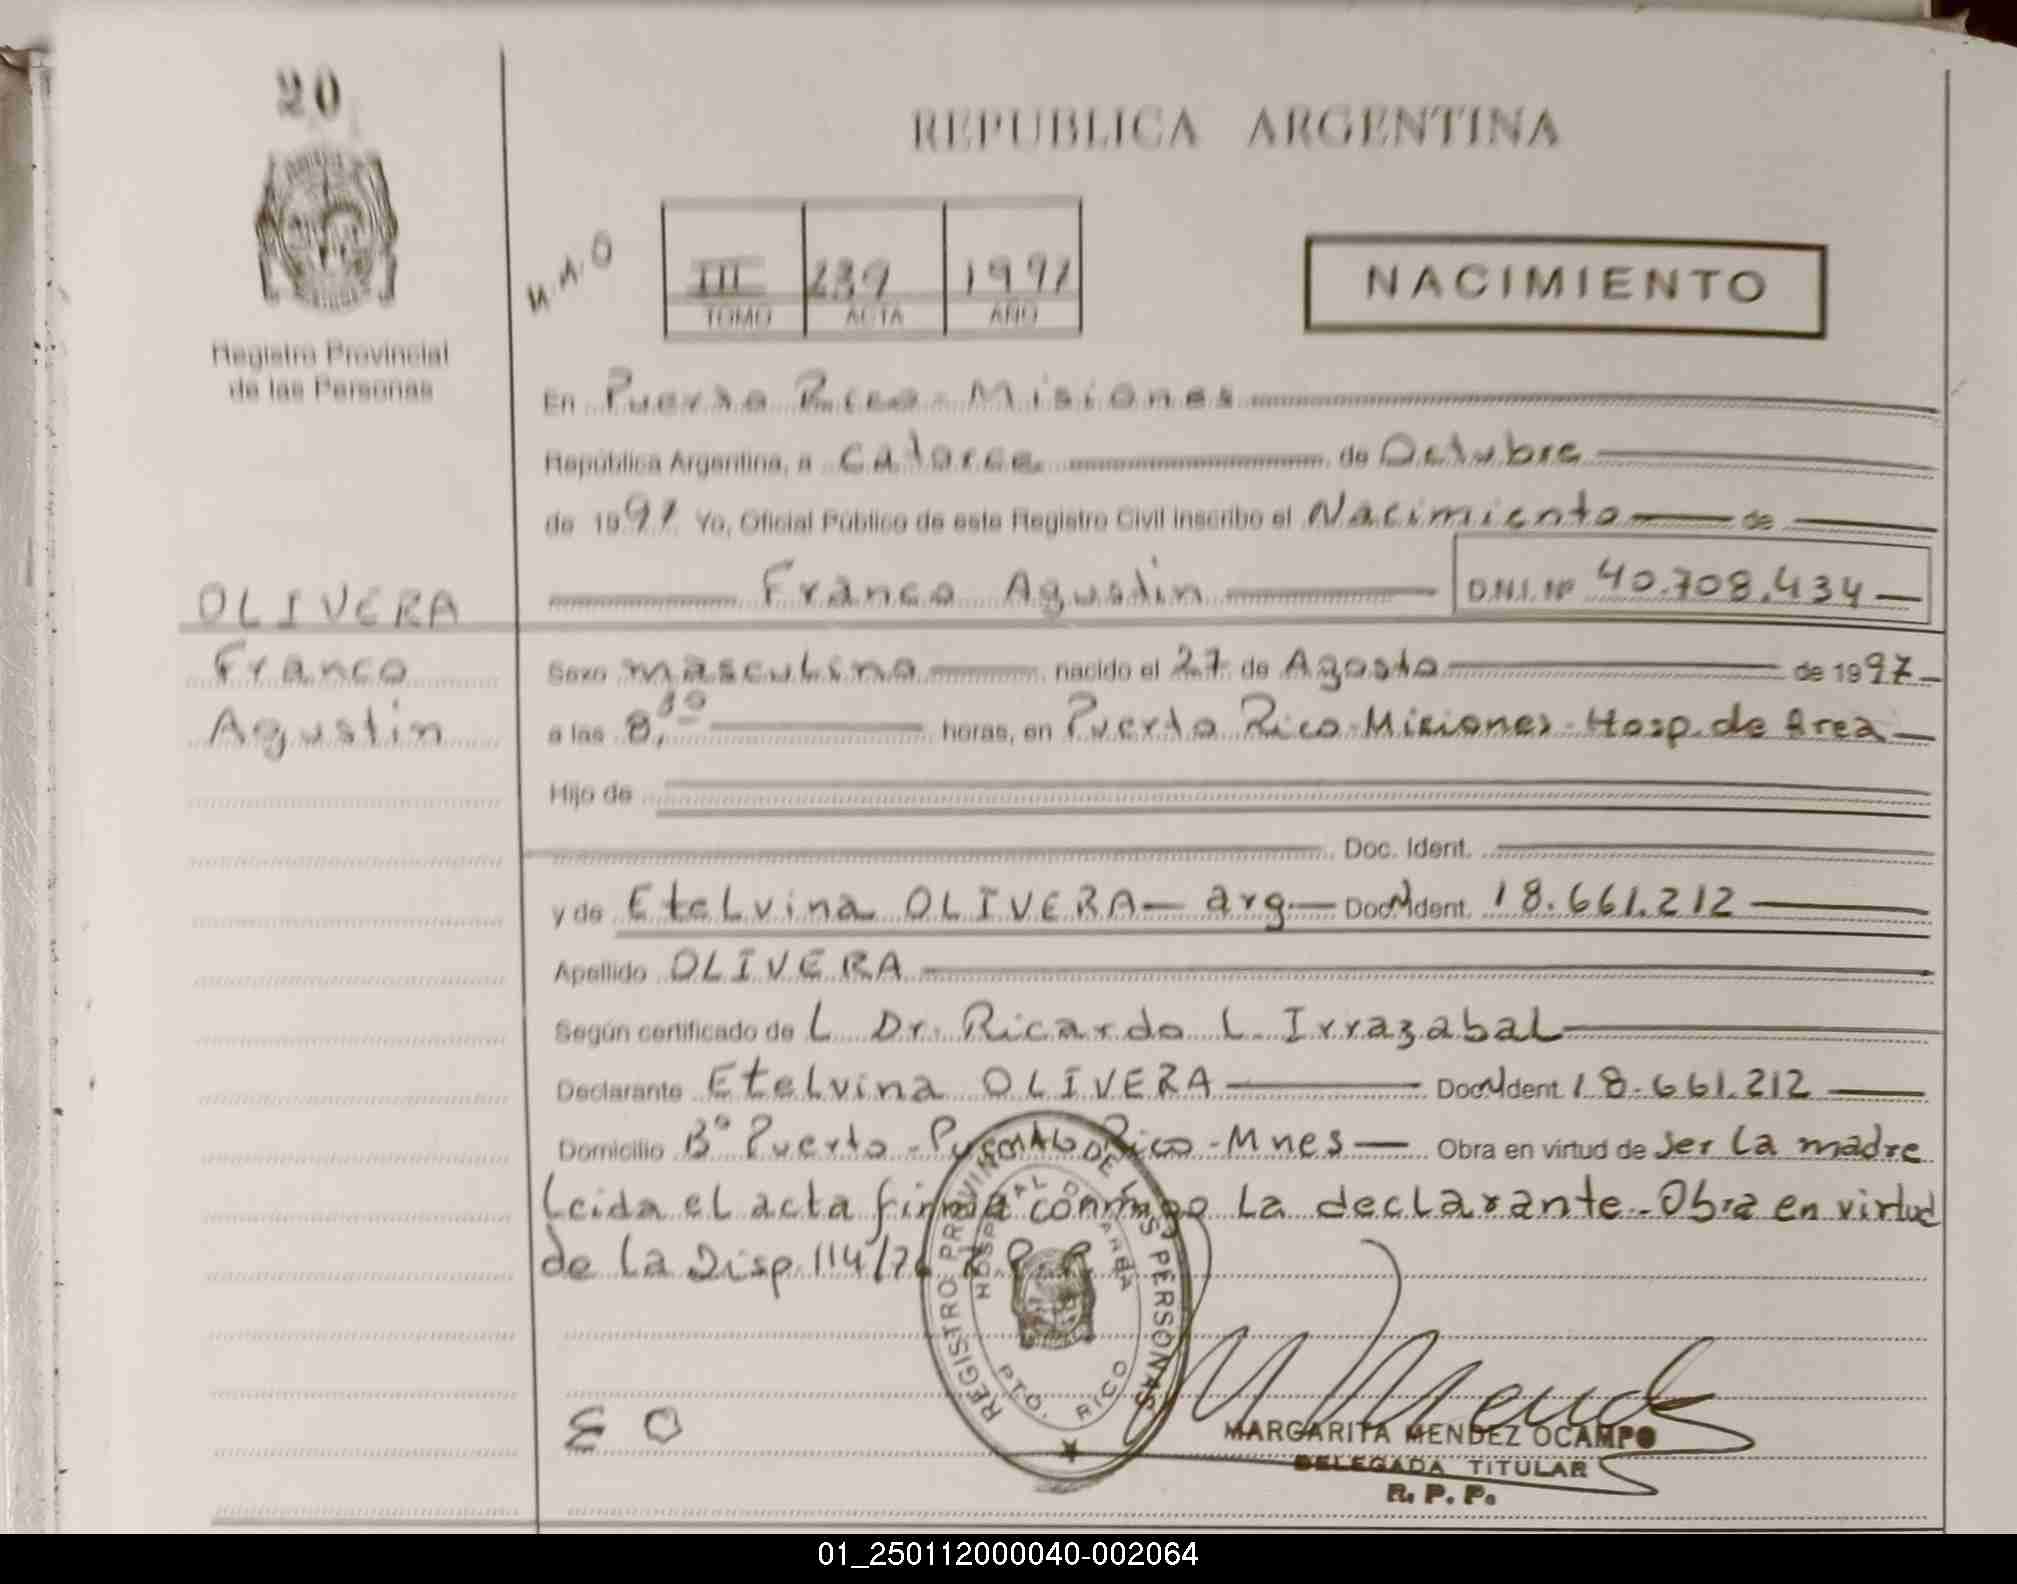 20
REPUBLICA ARGENTINA
M.M.O
III 239 1997
TOMO ACTA AÑO
NACIMIENTO
Registro Provincial
de las Personas
En Puerto Rico - Misiones
República Argentina, a catorce de Octubre
de 1997 Yo, Oficial Público de este Registro Civil inscribo el Nacimiento de
Franco Agustin D.N.I. Nº 40.708.434
OLIVERA
Franco
Agustin
Sexo masculino nacido el 27 de Agosto de 1997
a las 8, horas, en Puerto Rico-Misiones-Hosp. de Area
Hijo de
Doc. Ident.
y de Etelvina OLIVERA - arg - Doc. Ident. 18.661.212
Apellido OLIVERA
Según certificado de L Dr. Ricardo L. Irrazabal
Declarante Etelvina OLIVERA Doc. Ident. 18.661.212
Domicilio Bº Puerto - Puerto Rico - Mnes Obra en virtud de ser la madre
Leida el acta firma conmigo la declarante - Obra en virtud
de la Disp 114/
REGISTRO PROVINCIAL DE LAS PERSONAS
HOSPITAL DE AREA
PTO. RICO
EO
MARGARITA MENDEZ OCAMPO
DELEGADA TITULAR
R. P. P.
01_250112000040-002064